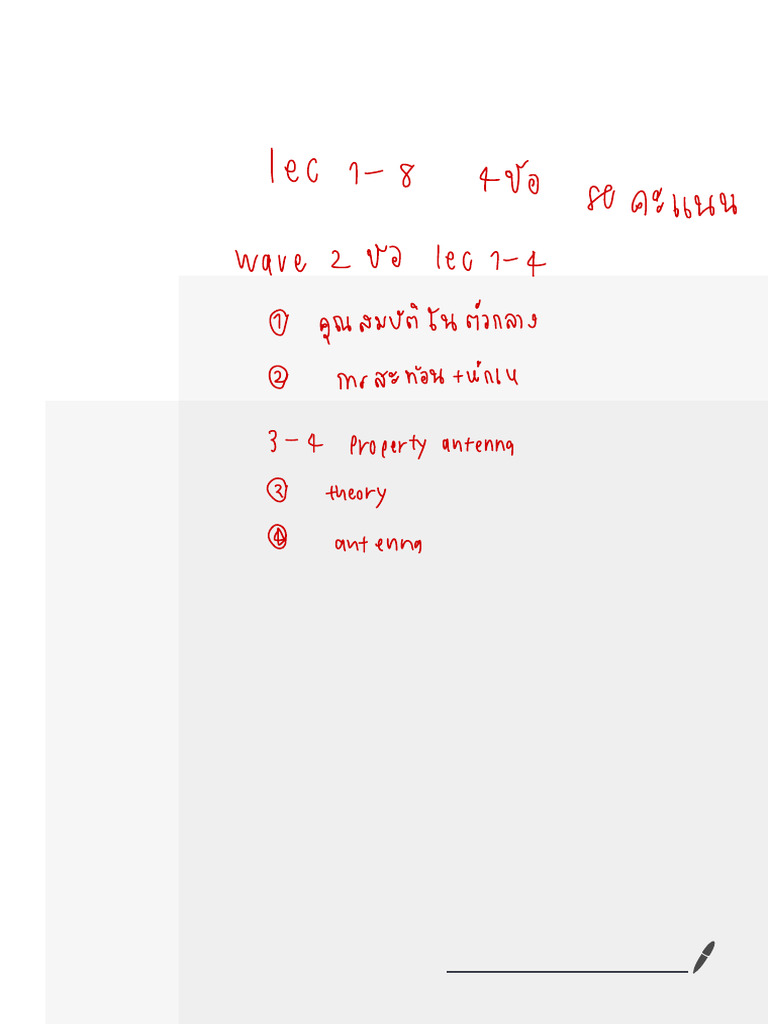 lec 1-8 4 ข้อ 80 คะแนน
wave 2 ข้อ lec 1-4
① คุณสมบัติในตัวกลาง
② การสะท้อน + หักเห
3-4 Property antenna
③ theory
④ antenna